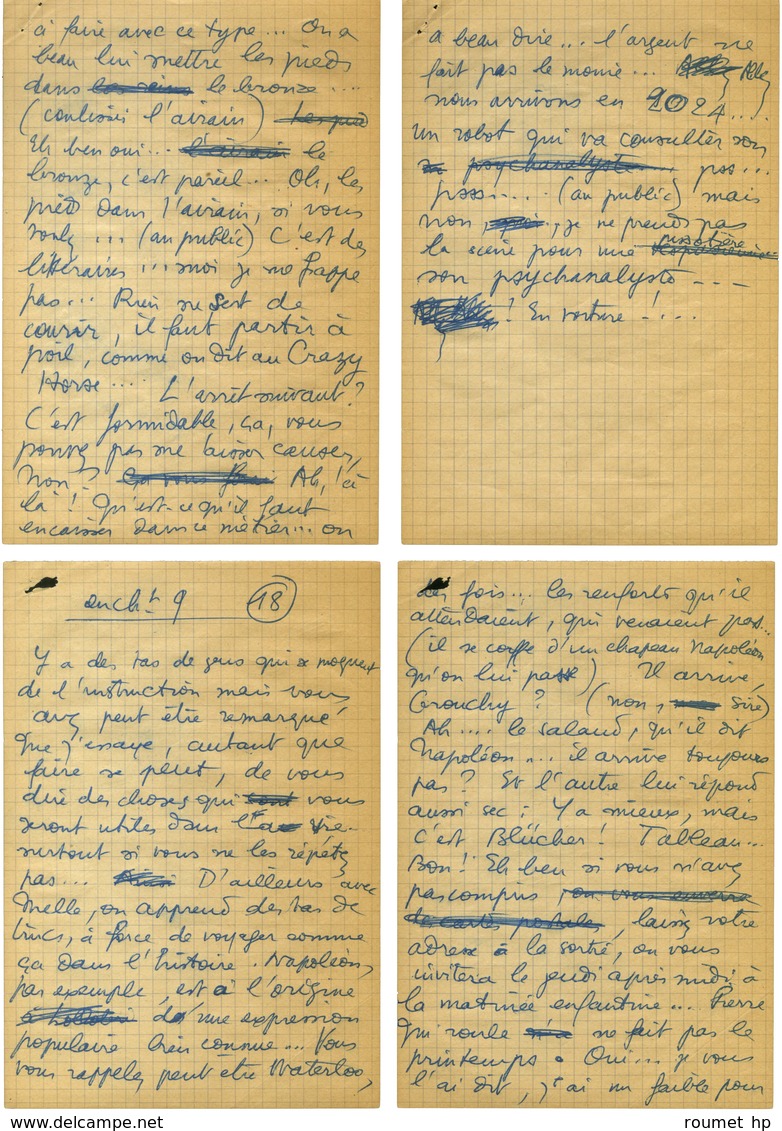 à faire avec ce type... On a
beau lui mettre les pieds
dans le bronze....
(coulisses l'airain)
Eh ben oui... l'airain le
bronze, c'est pareil... Oh, les
pieds dans l'airain, si vous
voulez... (au public) C'est des
littéraires... moi je ne frappe
pas... Rien ne sert de
courir, il faut partir à
poil, comme on dit au Crazy
Horse.... L'arrêt suivant?
C'est formidable, ça, vous
pouvez pas me laisser causer,
non? Ah, là
là! Qu'est-ce qu'il faut
encaisser dans ce métier... on
a beau dire... l'argent ne
fait pas le moine...
nous arrivons en 2024....
un robot qui va consulter son
psychanalyste pss...
psss.... (au public) mais
non, je ne prends pas
la scène pour une pissotière
son psychanalyste ---
! En voiture !...
ench^t 9 18
Y a des tas de gens qui se moquent
de l'instruction mais vous
avez peut être remarqué
que j'essaye, autant que
faire se peut, de vous
dire des choses qui sont vous
seront utiles dans la vie
surtout si vous ne les répétez
pas... D'ailleurs avec
melle, on apprend des tas de
trucs, à force de voyager comme
ça dans l'histoire. Napoléon,
par exemple, est à l'origine
d'une expression
populaire bien connue... Vous
vous rappelez peut être Waterloo,
des fois... les renforts qu'il
attendaient, qui venaient pas...
(il se coiffe d'un chapeau Napoléon
qu'on lui passe) Il arrive,
Grouchy? (non, Sire)
Ah.... le salaud, qu'il dit
Napoléon... il arrive toujours
pas? Et l'autre lui répond
aussi sec : Y a mieux, mais
c'est Blücher! Tableau...
Bon! Eh ben si vous n'avez
pas compris, on vous enverra
des cartes postales, laissez votre
adresse à la sortie, on vous
invitera le jeudi après midi à
la matinée enfantine... Pierre
qui roule ne fait pas le
printemps. Oui... je vous
l'ai dit, j'ai un faible pour
roumet hp